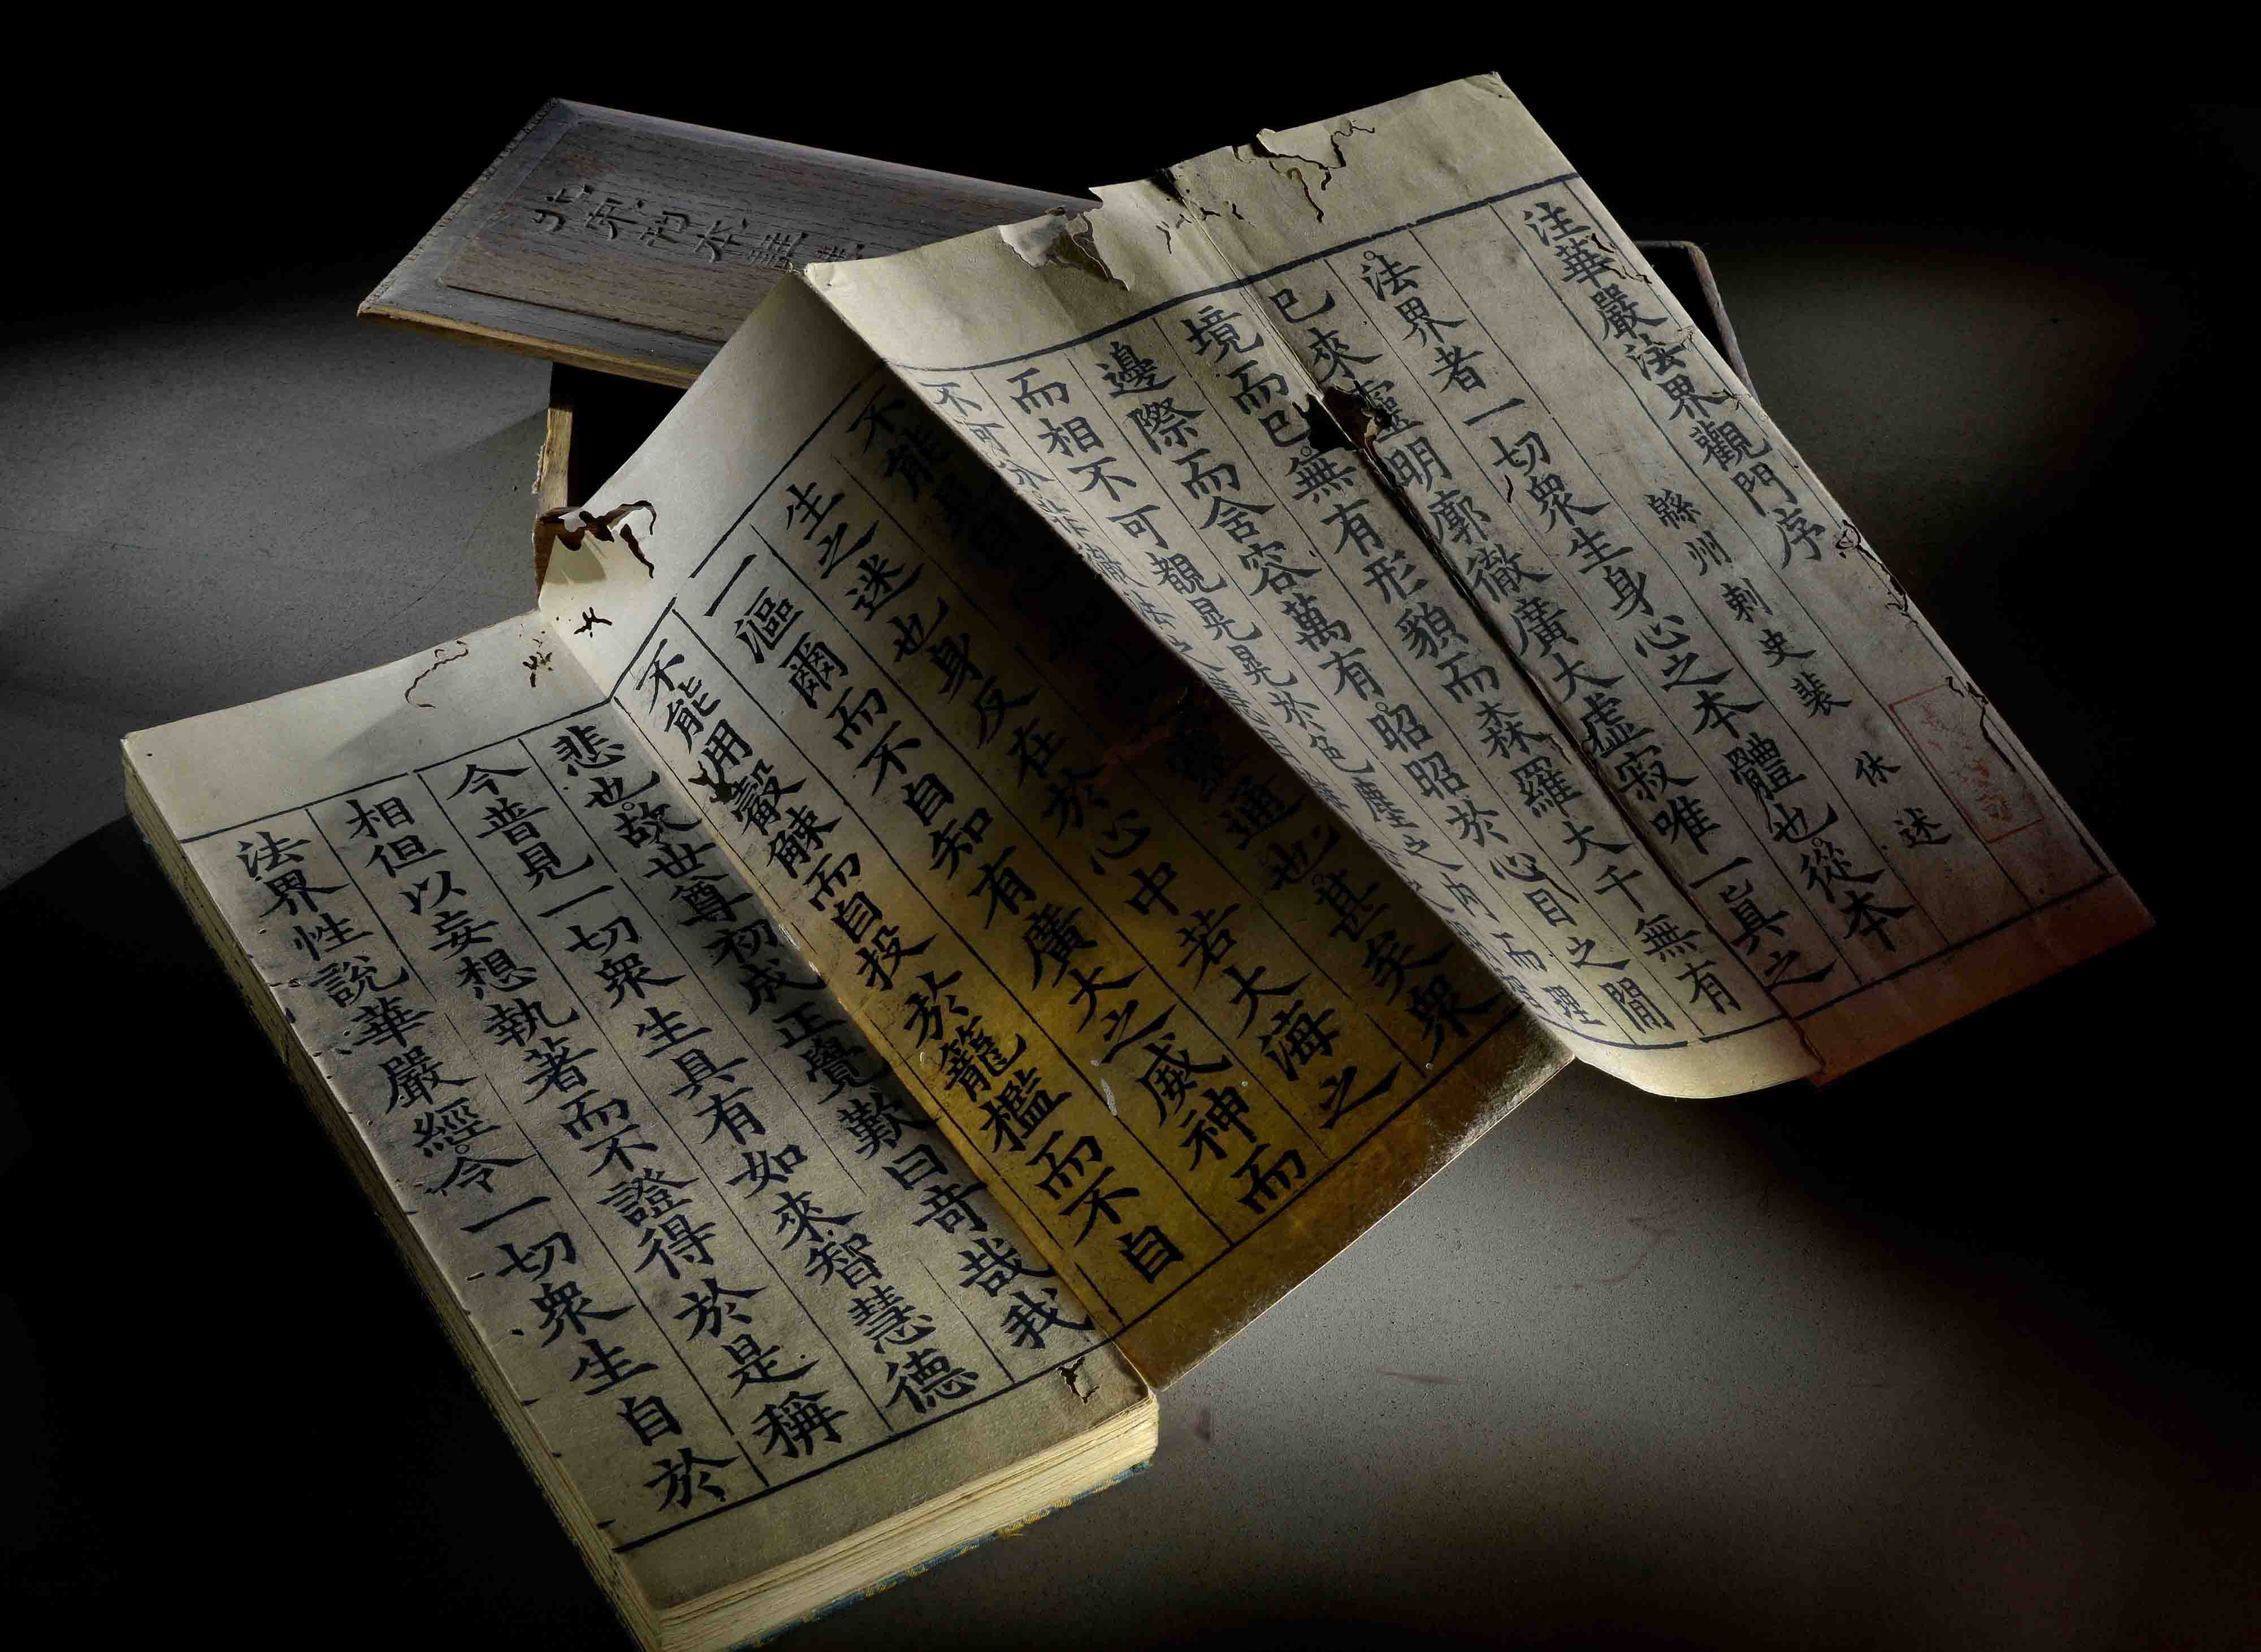 注華嚴法界觀門序
緜州刺史裴休述
法界者一切衆生身心之本體也從本
已來靈明廓徹廣大虛寂唯一眞之
境而已無有形貌而森羅大千無有
邊際而含容萬有昭昭於心目之閒
而相不可覩晃晃於色塵之內而理
不可分非徹法之
不能靈通也甚矣衆
生之迷也身反在於心中若大海之
一漚爾而不自知有廣大之威神而
不能用觳觫而自投於籠檻而不自
悲也故世尊初成正覺歎曰奇哉我
今普見一切衆生具有如來智慧德
相但以妄想執著而不證得於是稱
法界性說華嚴經令一切衆生自於
北宋刊本註